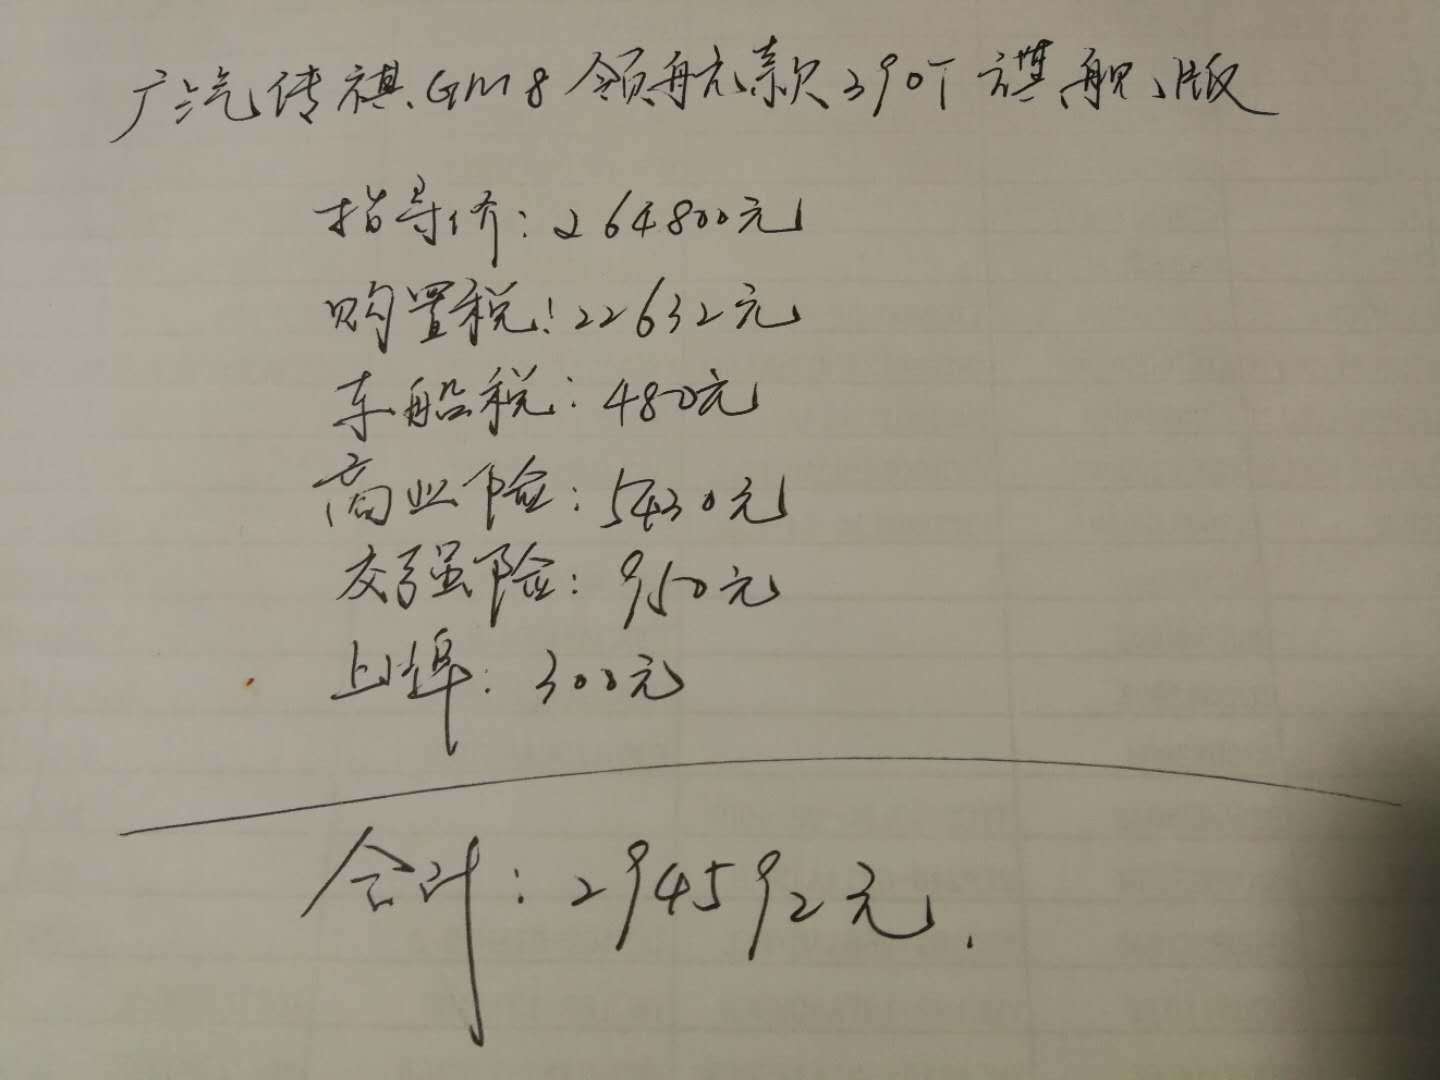 广汽传祺GM8领航款390T旗舰版
指导价：264800元
购置税：22632元
车船税：480元
商业险：5430元
交强险：950元
上牌：300元
合计：294592元.